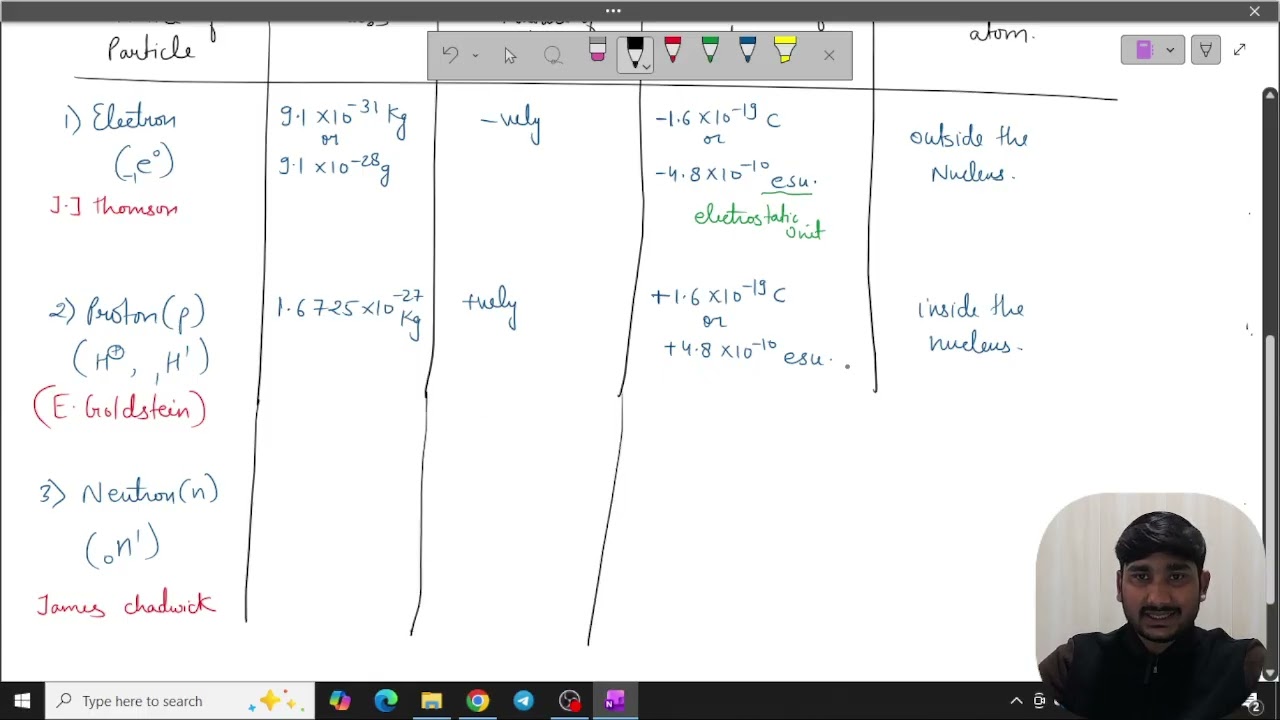 Particle
atom.
1) Electron
(₋₁e⁰)
J.J Thomson
9.1 ×10⁻³¹ Kg
or
9.1 ×10⁻²⁸g
-vely
-1.6 ×10⁻¹⁹ C
or
-4.8 ×10⁻¹⁰ esu.
electrostatic
unit
outside the
Nucleus.
2) Proton(p)
(H⊕, ₁H¹)
(E. Goldstein)
1.6725 ×10⁻²⁷
Kg
+vely
+1.6 ×10⁻¹⁹ C
or
+4.8 ×10⁻¹⁰ esu.
inside the
nucleus.
3) Neutron(n)
(₀n¹)
James chadwick
Type here to search
2